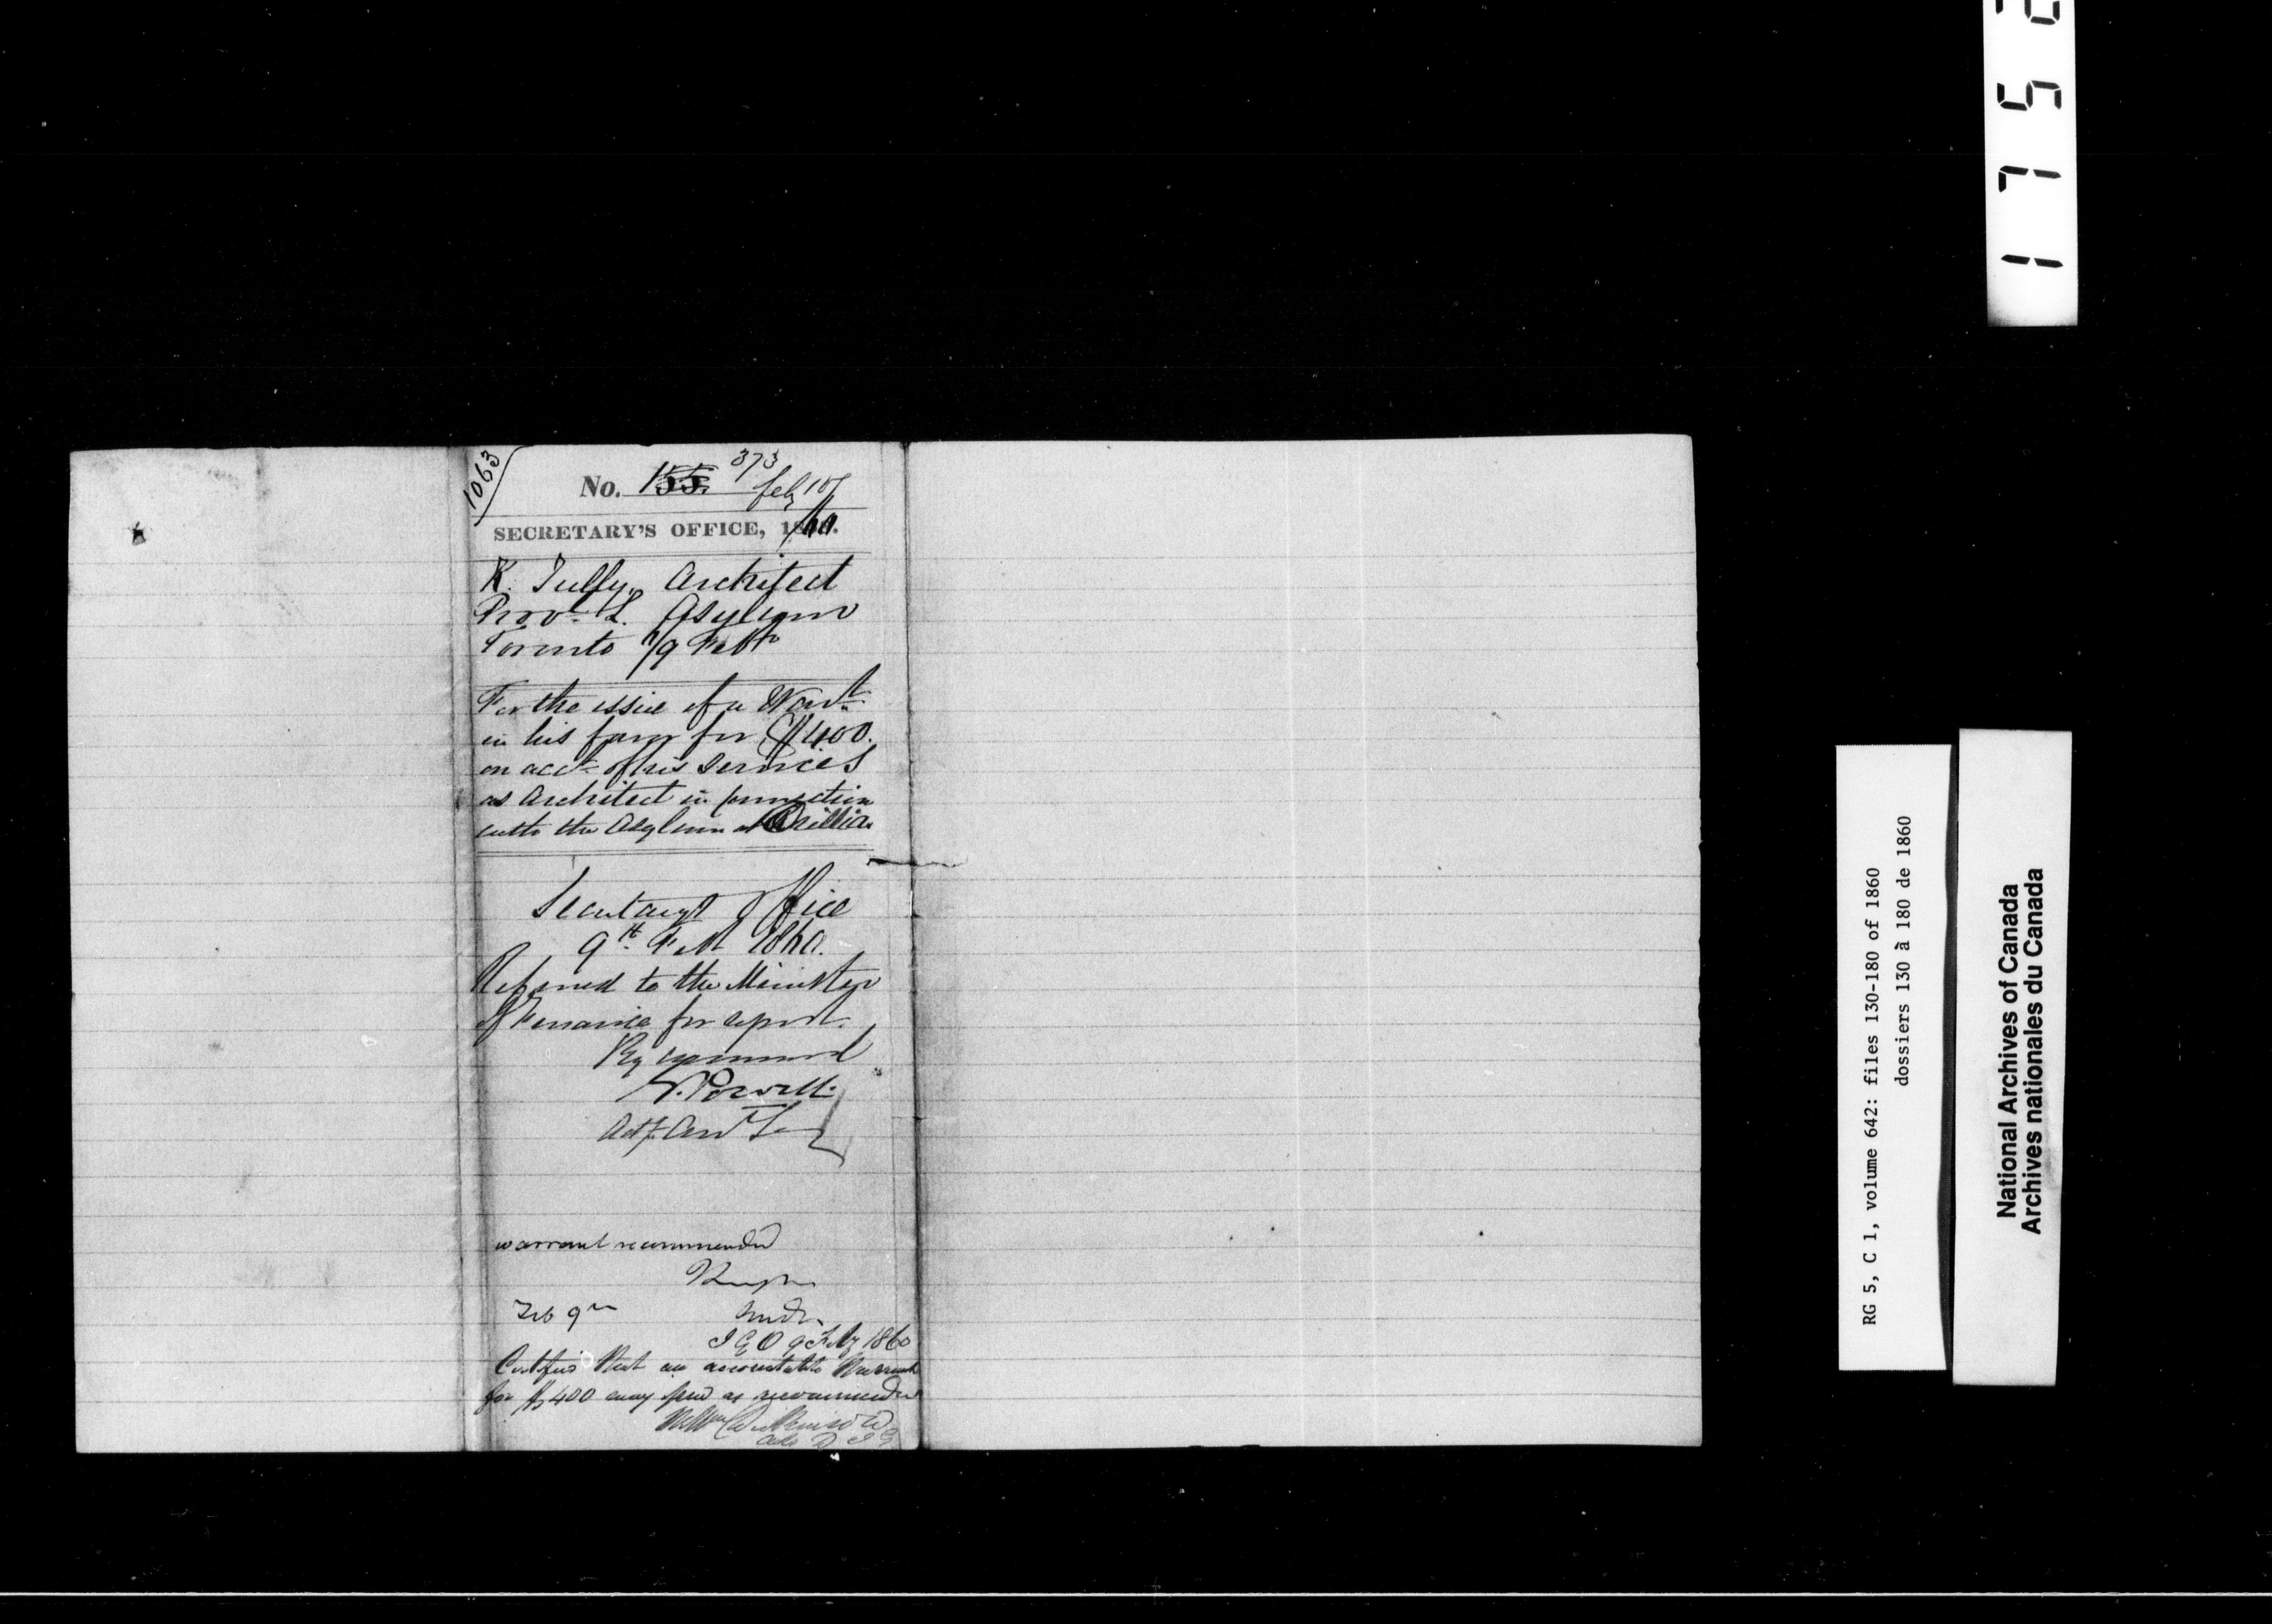 1063
No. 155. 373
Feby 10/
SECRETARY'S OFFICE, 1860.
K. Tully, Architect
Provl. L. Asylum
Toronto 9 Feby
For the issue of a Wart.
in his favor for $400.
on acct. of his services
as Architect in connection
with the Asylum at Orillia
Secretary's Office
9th. Feb 1860.
Referred to the Minister
of Finance for report.
By command
Powell
Actg. Asst Sec
warrant recommended
Feb 9th
I G O 9 Feby 1860
Certifies that an accountable Warrant
for $400 may issue as recommended
Dickinson
D I G
RG 5, C 1, volume 642: files 130-180 of 1860
dossiers 130 à 180 de 1860
National Archives of Canada
Archives nationales du Canada
1 7 5 2